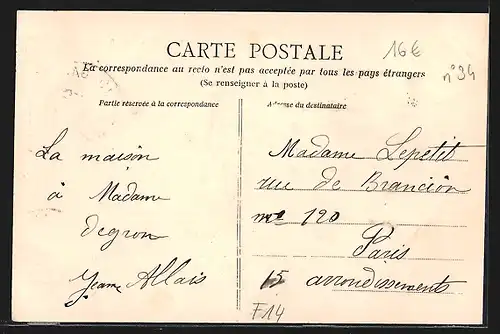 CARTE POSTALE
16€
n° 94
La correspondance au recto n'est pas acceptée par tous les pays étrangers
(Se renseigner à la poste)
Partie réservée à la correspondance
Adresse du destinataire
La maison
à Madame
degron
Jeanne Allais
Madame Lepetit
rue de Brancion
no 120
Paris
15 arrondissements
F14